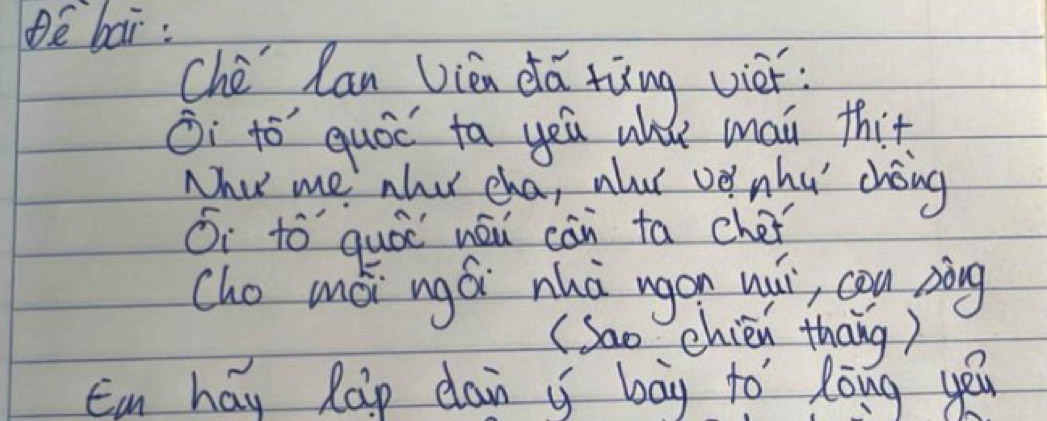 Đề bài:
Chế Lan Viên đã từng viết:
Ôi tổ quốc ta yêu như máu thịt
Như mẹ như cha, như vợ như chồng
Ôi tổ quốc nếu cần ta chết
Cho mỗi ngôi nhà ngọn núi, con sông
(Sao chiến thắng)
Em hãy lập dàn ý bày tỏ lòng yêu